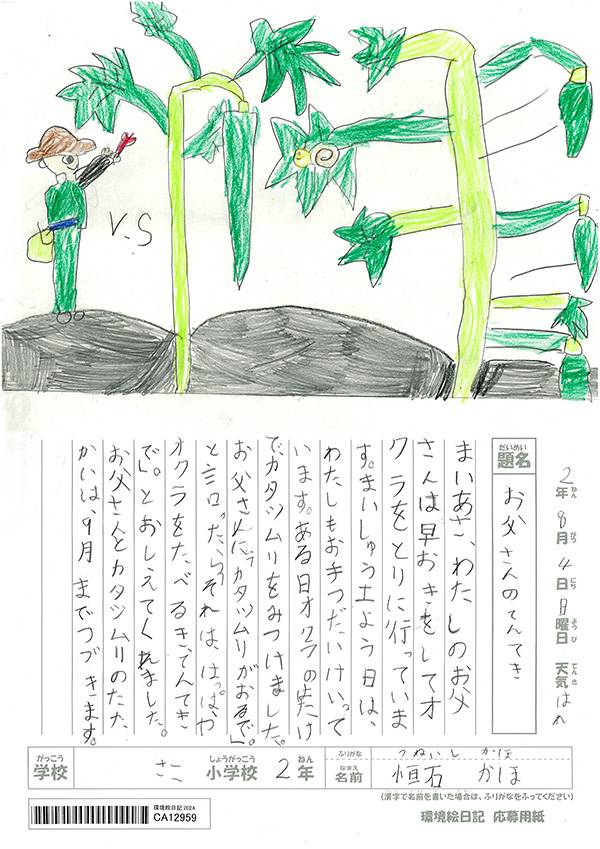 V.S
2年 8月 4日 日曜日 天気 はれ
ねん がつ にち ようび てんき
だいめい
題名
お父さんのてんてき
まいあさ、わたしのお父
さんは早おきをしてオ
クラをとりに行っていま
す。まいしゅう土よう日は、
わたしもお手つだいけいって
います。ある日オクラのはたけ
でカタツムリをみつけました。
お父さんに「カタツムリがおるで」。
と言った
それは、はっぱや
オクラをたべるき、てんてき
で」。とおしえてくれました。
お父さんとカタツムリのたた
かいは、9月までつづきます。
がっこう
学校
しょうがっこう
小学校
2年
ねん
ふりがな
つねいし かほ
なまえ
名前
恒石 かほ
(漢字で名前を書いた場合は、ふりがなをふってください)
環境絵日記 2024
CA12959
環境絵日記 応募用紙